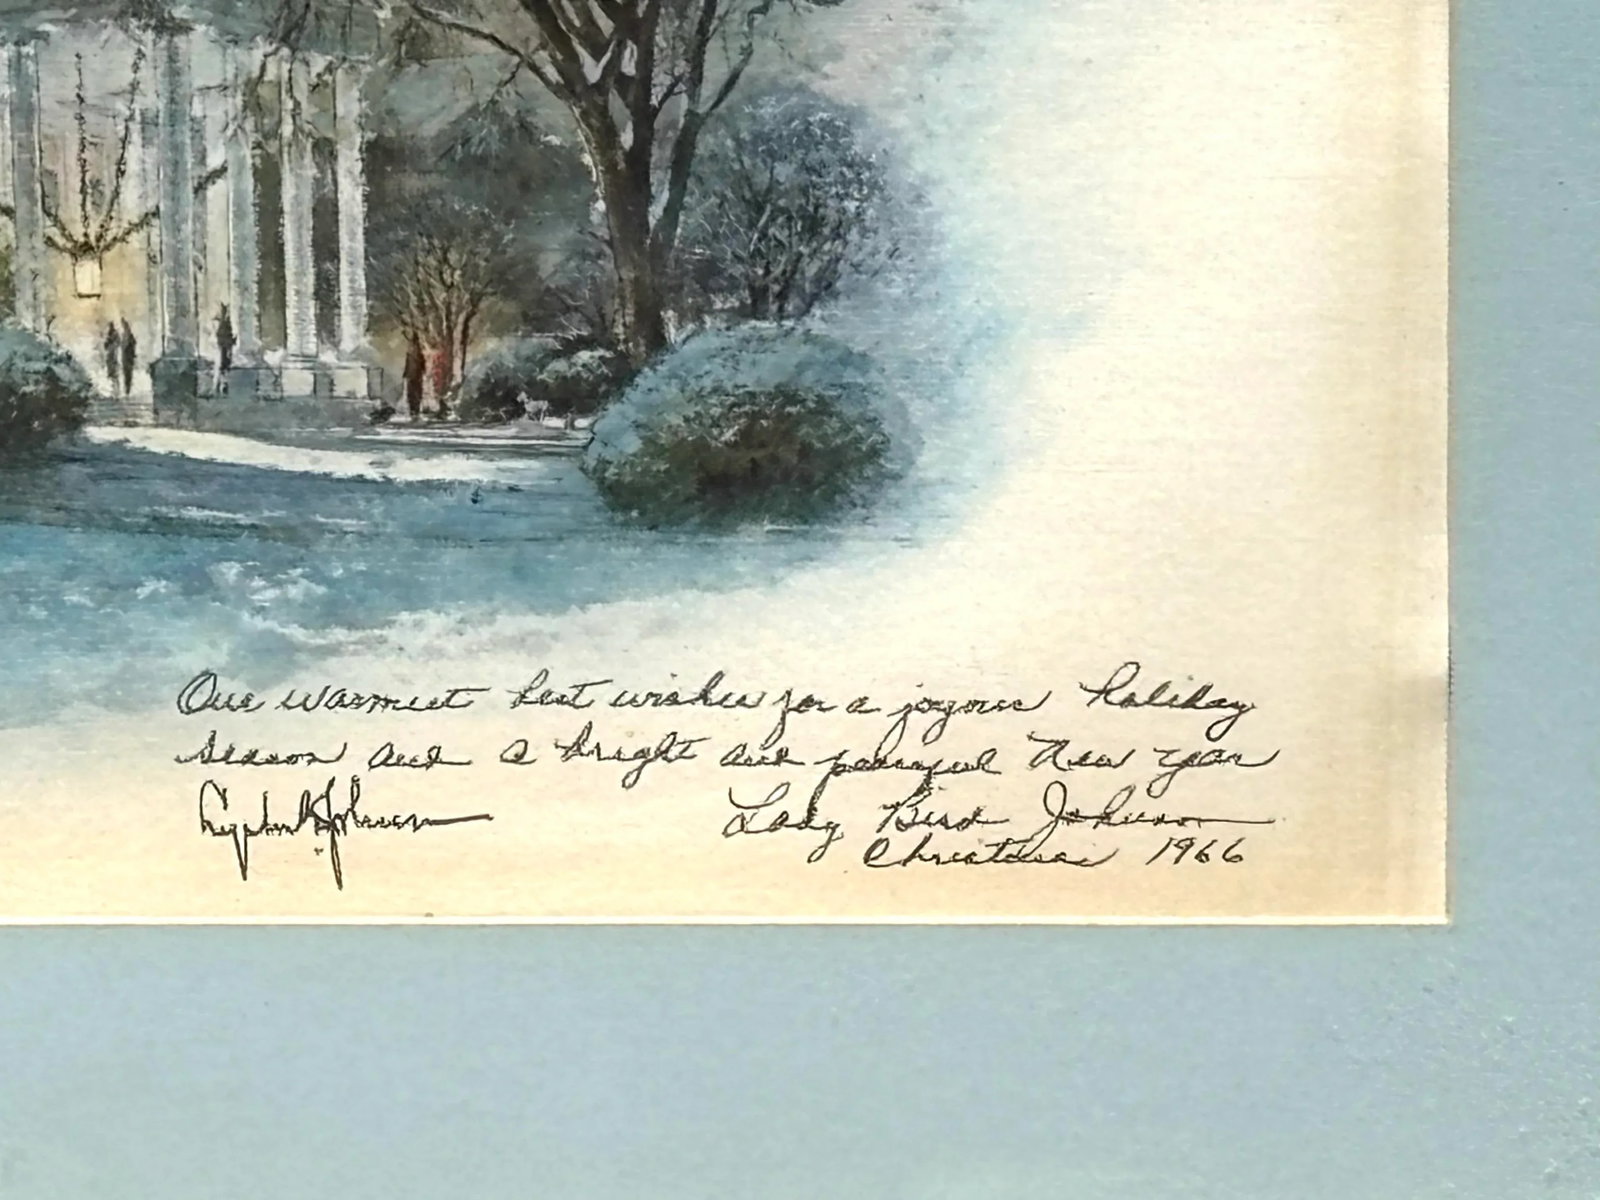 Our warmest best wishes for a joyous holiday
season and a bright and peaceful New Year
Lyndon B. Johnson Lady Bird Johnson
Christmas 1966